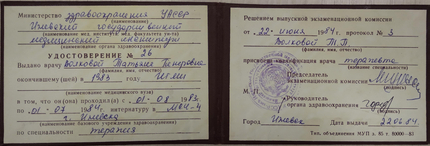 Министерство здравоохранения УАССР
Ижевский государственный
(наименование)
медицинский институт
(наименование органа здравоохранения)
УДОСТОВЕРЕНИЕ № 26
Выдано врачу Волковой Татьяне Петровне
(фамилия, имя, отчество)
окончившему (шей) в 1983 году ИГМИ
(наименование медицинского вуза)
в том, что он (она) проходил (а) с 01-08 1983
по 01-07 1984г. интернатуру в МСЧ-4
г. Ижевска
(наименование базового учреждения здравоохранения)
по специальности терапия
Решением выпускной экзаменационной комиссии
от «22» июня 1984г. протокол № 3
Волковой Т.П.
(фамилия, имя, отчество)
присвоена квалификация врача терапевта
Председатель
экзаменационной
комиссии
(подпись)
М. П.
Руководитель
органа здравоохранения
(подпись)
Город Ижевск Дата выдачи 22.06.84
Тип. объединения МУП з. 85 т. 80000-83